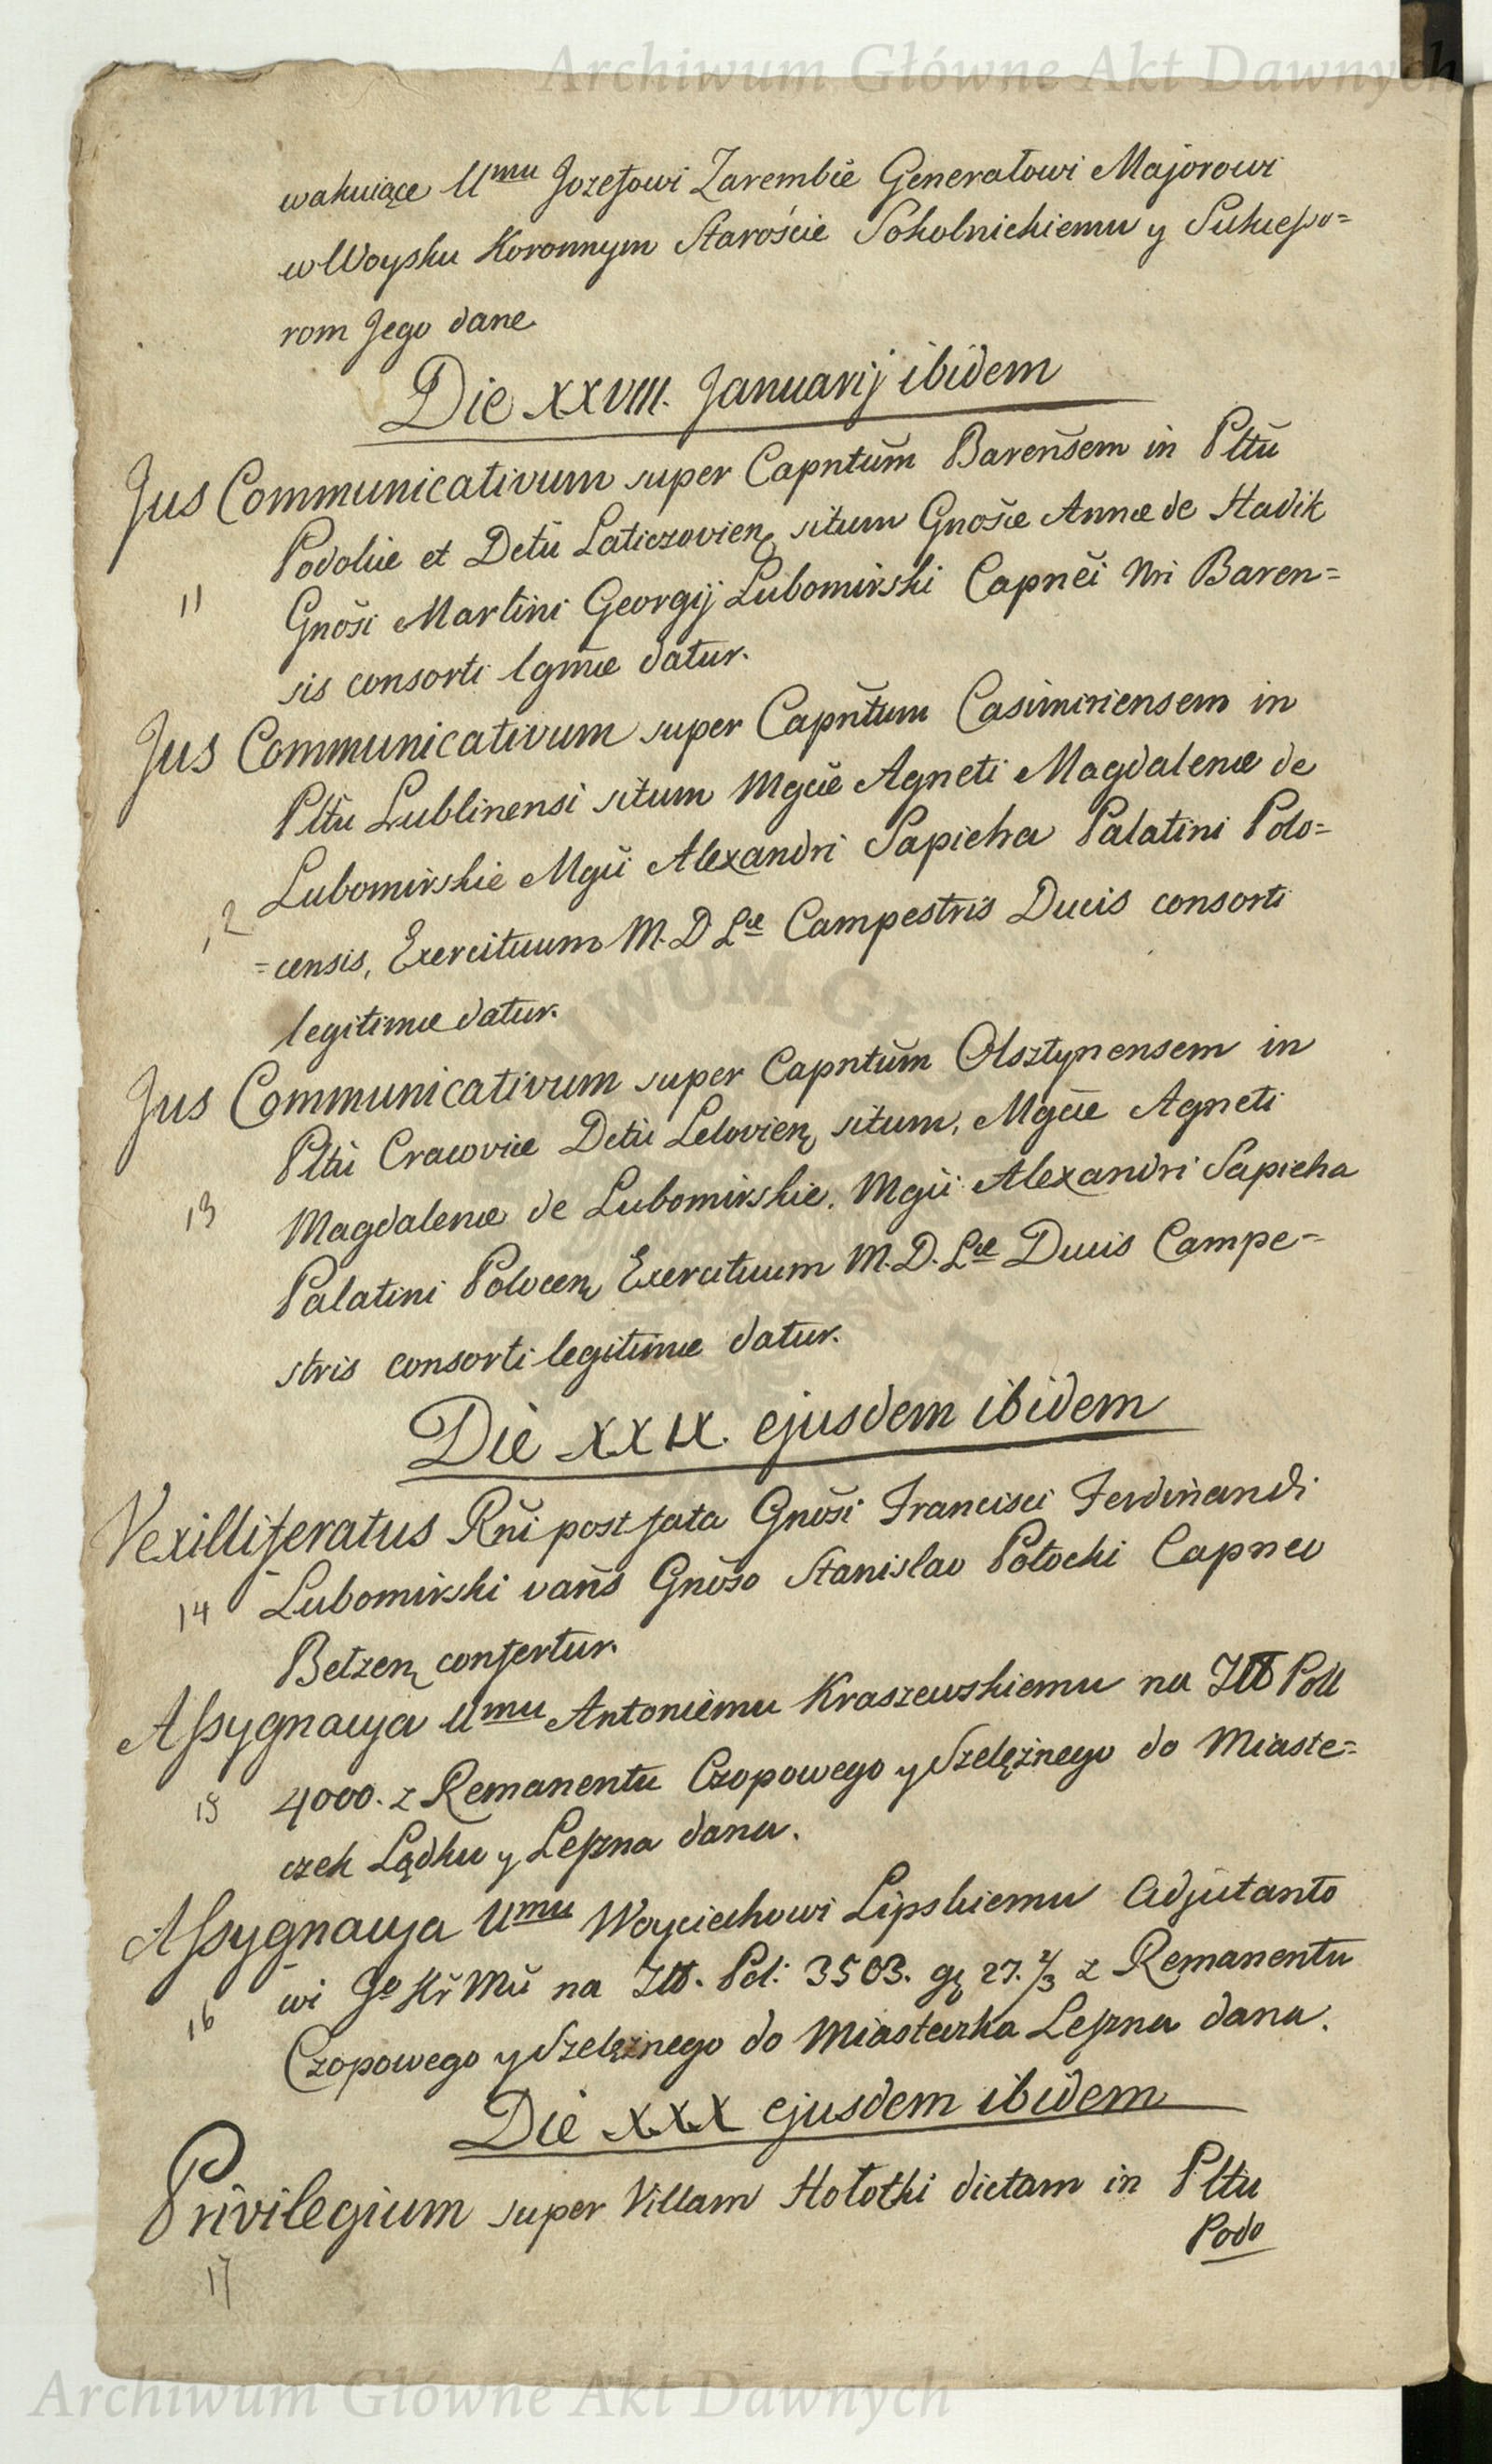 Archiwum Główne Akt Dawnych
wakuiące Umu Jozefowi Zarembie Generałowi Majorowi
w Woysku Koronnym Staroście Sokolnickiemu y Sukcesso=
rom Jego dane
Die XXVIII. Januarij ibidem
Jus Communicativum super Capntum Barensem in Pltu
Podoliæ et Dctu Laticzovien situm Gnosæ Annæ de Hadik
11
Gnosi Martini Georgij Lubomirski Capnei Nri Baren=
sis consorti lgmæ datur.
Jus Communicativum super Capntum Casimiriensem in
Pltu Lublinensi situm Mgcæ Agneti Magdalenæ de
Lubomirskie Mgci Alexandri Sapieha Palatini Polo=
12
=censis, Exercituum M. D. Læ Campestris Ducis consorti
legitimæ datur.
Jus Communicativum super Capntum Olsztynensem in
Pltu Cracoviæ Dctu Lelovien situm, Mgcæ Agneti
13
Magdalenæ de Lubomirskie. Mgci Alexandri Sapieha
Palatini Polocen Exercituum M. D. Læ Ducis Campe=
stris consorti legitimæ datur.
Die XXIX. ejusdem ibidem
Vexilliferatus Rni post fata Gnosi Francisci Ferdinandi
14
Lubomirski vans Gnoso Stanislao Potocki Capneo
Bełzen confertur.
Assygnacya Umu Antoniemu Kraszewskiemu na Złł Poll
15
4000. z Remanentu Czopowego y Szelężnego do Miaste=
czek Lądku y Leszna dana.
Assygnacya Umu Woyciechowi Lipskiemu Adjutanto
16
wi Go Kr Mci na Złł. Pol: 3503. g 27. 2/3 z Remanentu
Czopowego y Szelężnego do Miasteczka Leszna dana.
Die XXX ejusdem ibidem
Privilegium super Villam Hołotki dictam in Pltu
17
Podo
Archiwum Główne Akt Dawnych